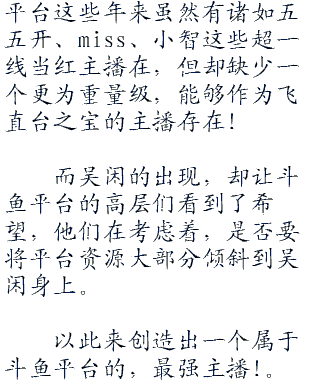 平台这些年来虽然有诸如五
五开、miss、小智这些超一
线当红主播在，但却缺少一
个更为重量级，能够作为飞
直台之宝的主播存在！
而吴闲的出现，却让斗
鱼平台的高层们看到了希
望，他们在考虑着，是否要
将平台资源大部分倾斜到吴
闲身上。
以此来创造出一个属于
斗鱼平台的，最强主播！。